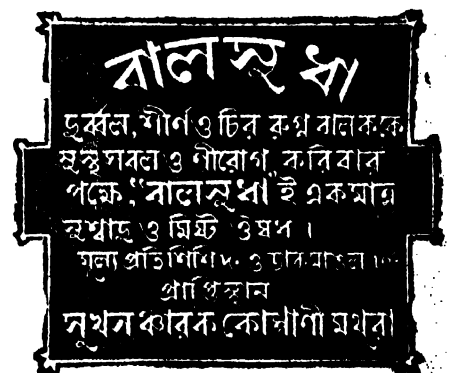 বালসুধা
দুর্ব্বল, শীর্ণ ও চির রুগ্ন বালককে
সুস্থ সবল ও নীরোগ করিবার
পক্ষে, "বালসুধা"ই একমাত্র
সুস্বাদু ও মিষ্ট ঔষধ ।
মূল্য প্রতি শিশি ও ডাকমাশুল
প্রাপ্তিস্থান
সুখসঞ্চারক কোম্পাণী মথুরা